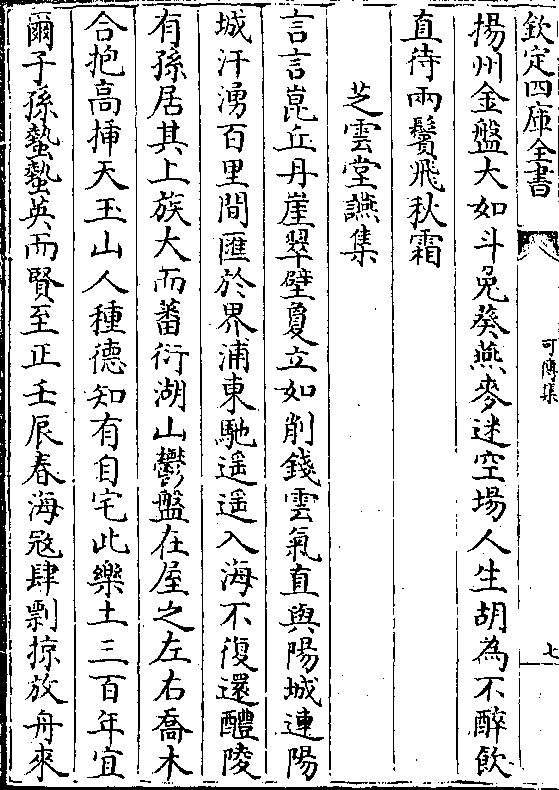 欽定四庫全書
可傳集
七
揚州金盤大如斗兔葵燕麥迷空場人生胡為不醉飲
直待兩鬢飛秋霜
芝雲堂讌集
言言崑丘丹崖翠壁夐立如削錢雲氣直與陽城連陽
城汗湧百里間匯於界浦東馳遥遥入海不復還醴陵
有孫居其上族大而蕃衍湖山鬱盤在屋之左右喬木
合抱高揷天玉山人種德知有自宅此樂土三百年宜
爾子孫蟄蟄英而賢至正壬辰春海冦肆剽掠放舟來